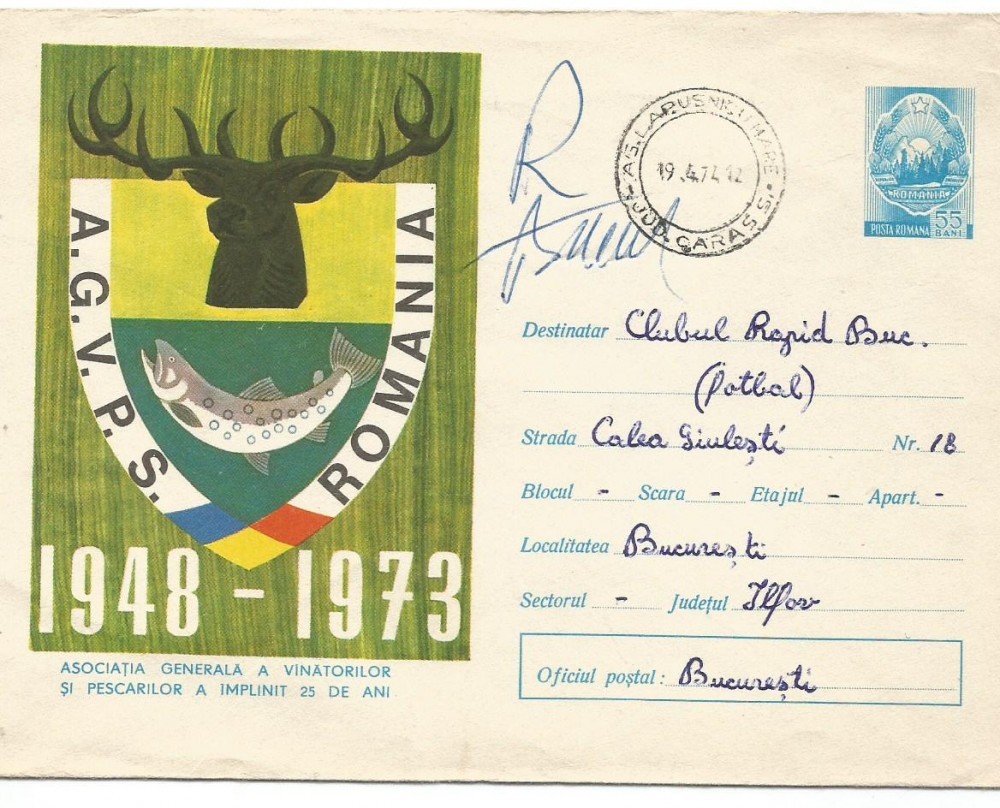 A.G.V.P.S. ROMANIA
1948 - 1973
ASOCIAȚIA GENERALĂ A VÎNĂTORILOR
ȘI PESCARILOR A ÎMPLINIT 25 DE ANI
R
AG. LAPUSNICU MARE
19.4.74.12
JUD. CARAS S.
ROMANIA
POSTA ROMANA 55 BANI
Destinatar Clubul Rapid Buc.
(fotbal)
Strada Calea Giulești Nr. 18
Blocul - Scara - Etajul - Apart. -
Localitatea București
Sectorul - Județul Ilfov
Oficiul poștal: București